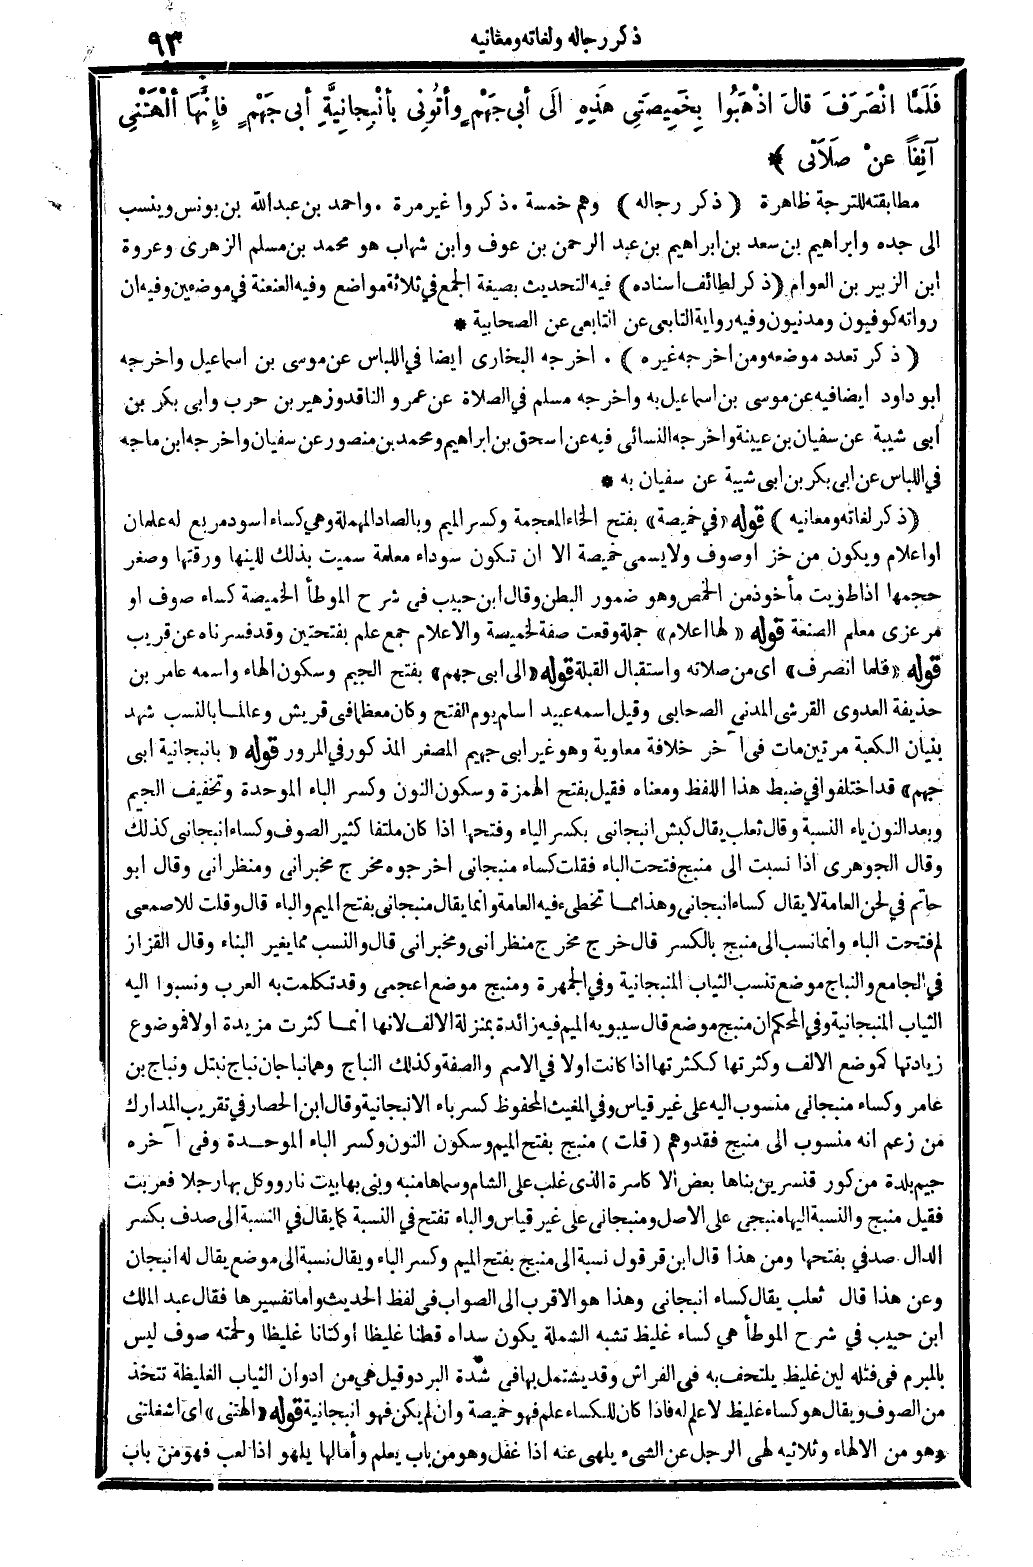 ذكر رجاله ولغاته ومعانيه
٩٣
فَلَمَّا انْصَرَفَ قالَ اذْهَبُوا بِخَمِيصَتِي هَذِهِ الَى أبي جَهْمٍ وأتُونِي بأنْبِجانِيَّةِ أبي جَهْمٍ فَإنَّهَا ألْهَتْنِي
آنِفاً عنْ صَلاَتي ﴾ *
مطابقته للترجمة ظاهرة ( ذكر رجاله ) وهم خمسة . ذكروا غير مرة . واحمد بن عبدالله بن يونس وينسب
الى جده وابراهيم بن سعد بن ابراهيم بن عبد الرحمن بن عوف وابن شهاب هو محمد بن مسلم الزهرى وعروة
ابن الزبير بن العوام ( ذكر لطائف اسناده ) فيه التحديث بصيغة الجمع في ثلاثة مواضع وفيه العنعنة في موضعين وفيه ان
رواته كوفيون ومدنيون وفيه رواية التابعى عن التابعى عن الصحابية *
( ذكر تعدد موضعه ومن اخرجه غيره ) . اخرجه البخارى ايضا في اللباس عن موسى بن اسماعيل واخرجه
ابو داود ايضا فيه عن موسى بن اسماعيل به واخرجه مسلم في الصلاة عن عمرو الناقد وزهير بن حرب وابى بكر بن
أبى شيبة عن سفيان بن عيينة واخرجه النسائى فيه عن اسحق بن ابراهيم ومحمد بن منصور عن سفيان واخرجه ابن ماجه
في اللباس عن ابى بكر بن ابى شيبة عن سفيان به *
( ذكر لغاته ومعانيه ) قوله «في خميصة» بفتح الخاء المعجمة وكسر الميم وبالصاد المهملة وهي كساء اسود مربع له علمان
او اعلام ويكون من خز اوصوف ولا يسمى خميصة الا ان تكون سوداء معلمة سميت بذلك للينها ورقتها وصغر
حجمها اذا طويت مأخوذ من الخمص وهو ضمور البطن وقال ابن حبيب فى شرح الموطأ الخميصة كساء صوف او
مرعزى معلم الصنعة قوله « لها اعلام» جملة وقعت صفة لخميصة والاعلام جمع علم بفتحتين وقد فسرناه عن قريب
قوله «فلما انصرف» اى من صلاته واستقبال القبلة قوله «الى ابى جهم» بفتح الجيم وسكون الهاء واسمه عامر بن
حذيفة العدوى القرشى المدني الصحابي وقيل اسمه عبيد اسلم يوم الفتح وكان معظما فى قريش وعالما بالنسب شهد
بنيان الكعبة مرتين مات فى آخر خلافة معاوية وهو غير ابى جهيم المصغر المذكور في المرور قوله « بانبجانية ابى
جهم» قد اختلفوا في ضبط هذا اللفظ ومعناه فقيل بفتح الهمزة وسكون النون وكسر الباء الموحدة وتخفيف الجيم
وبعد النون ياء النسبة وقال ثعلب يقال كبش انبجانى بكسر الباء وفتحها اذا كان ملتفا كثير الصوف وكساء انبجانى كذلك
وقال الجوهرى اذا نسبت الى منبج فتحت الباء فقلت كساء منبجانى اخرجوه مخرج مخبرانى ومنظرانى وقال ابو
حاتم في لحن العامة لا يقال كساء انبجانى وهذا مما تخطىء فيه العامة وانما يقال منبجانى بفتح الميم والباء قال وقلت للاصمعى
لم فتحت الباء وانما نسب الى منبج بالكسر قال خرج مخرج منظرانى ومخبرانى قال والنسب مما يغير البناء وقال القزاز
في الجامع والنباج موضع تنسب الثياب المنبجانية وفي الجمهرة ومنبج موضع اعجمى وقد تكلمت به العرب ونسبوا اليه
الثياب المنبجانية وفي المحكم ان منبج موضع قال سيبويه الميم فيه زائدة بمنزلة الالف لانها انما كثرت مزيدة اولا فموضوع
زيادتها كموضع الالف وكثرتها ككثرتها اذا كانت اولا في الاسم والصفة وكذلك النباج وهما نباجان نباج نبتل ونباج بن
عامر وكساء منبجانى منسوب اليه على غير قياس وفي المغيث المحفوظ كسر باء الانبجانية وقال ابن الحصار في تقريب المدارك
من زعم انه منسوب الى منبج فقد وهم ( قلت ) منبج بفتح الميم وسكون النون وكسر الباء الموحدة وفى آخره
جيم بلدة من كور قنسرين بناها بعض الاكاسرة الذى غلب على الشام وسماها منبه وبنى بها بيت نار ووكل بها رجلا فعربت
فقيل منبج والنسبة اليها منبجى على الاصل ومنبجانى على غير قياس والباء تفتح في النسبة كما يقال في النسبة الى صدف بكسر
الدال صدفي بفتحها ومن هذا قال ابن قرقول نسبة الى منبج بفتح الميم وكسر الباء ويقال نسبة الى موضع يقال له انبجان
وعن هذا قال ثعلب يقال كساء انبجانى وهذا هو الاقرب الى الصواب فى لفظ الحديث واما تفسيرها فقال عبد الملك
ابن حبيب في شرح الموطأ هي كساء غليظ تشبه الشملة يكون سداه قطنا غليظا او كتانا غليظا ولحمته صوف ليس
بالمبرم فى فتله لين غليظ يلتحف به فى الفراش وقد يشتمل بها فى شدة البرد وقيل هي من ادوان الثياب الغليظة تتخذ
من الصوف ويقال هو كساء غليظ لا علم له فاذا كان للكساء علم فهو خميصة وان لم يكن فهو انبجانية قوله «الهتنى» اى اشغلتنى
وهو من الالهاء وثلاثيه لهى الرجل عن الشىء يلهى عنه اذا غفل وهو من باب يعلم وأمالها يلهو اذا لعب فهو من باب